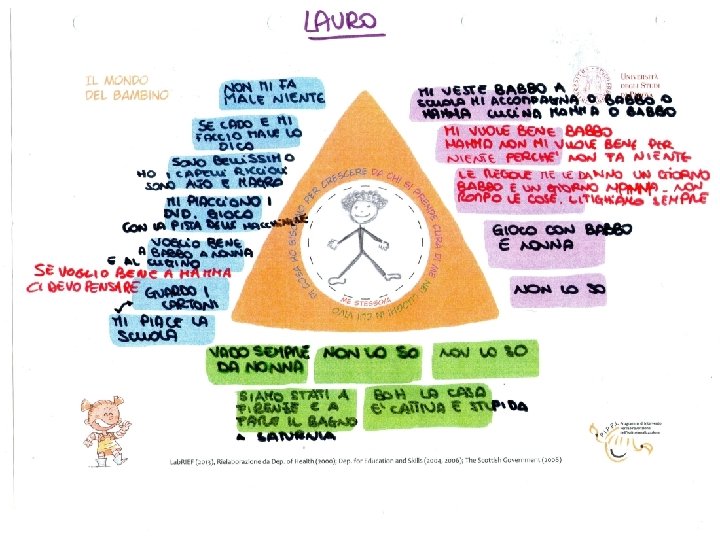 LAURO
IL MONDO
DEL BAMBINO
NON MI FA
MALE NIENTE
SE CADO E MI
FACCIO MALE LO
DICO
SONO BELLISSIMO
HO I CAPELLI RICCIOLI
SONO ALTO E MAGRO
MI PIACCIONO I
DVD. GIOCO
CON LA PISTA DELLE MACCHININE
VOGLIO BENE
A BABBO A NONNA
E AL CUGINO
SE VOGLIO BENE A MAMMA
CI DEVO PENSARE
GUARDO I
CARTONI
MI PIACE LA
SCUOLA
DI COSA HO BISOGNO PER CRESCERE DA CHI SI PRENDE CURA DI ME
ME STESSO/A
NEI LUOGHI IN CUI VIVO
UNIVERSITÀ
DEGLI STUDI
DI PADOVA
MI VESTE BABBO A
SCUOLA MI ACCOMPAGNA O BABBO O
MAMMA CUCINA MAMMA O BABBO
MI VUOLE BENE BABBO
MAMMA NON MI VUOLE BENE PER
NIENTE PERCHE' NON FA NIENTE
LE REGOLE ME LE DANNO UN GIORNO
BABBO E UN GIORNO MAMMA - NON
ROMPO LE COSE. LITIGHIAMO SEMPRE
GIOCO CON BABBO
E NONNA
NON LO SO
VADO SEMPRE
DA NONNA
NON LO SO
NON LO SO
SIAMO STATI A
FIRENZE E A
FARE IL BAGNO
A SATURNIA
BOH LA CASA
E' CATTIVA E STUPIDA
P.I.P.P.I.
LabRIEF (2013), Rielaborazione da Dep. of Health (2000); Dep. for Education and Skills (2004, 2006); The Scottish Government (2008)